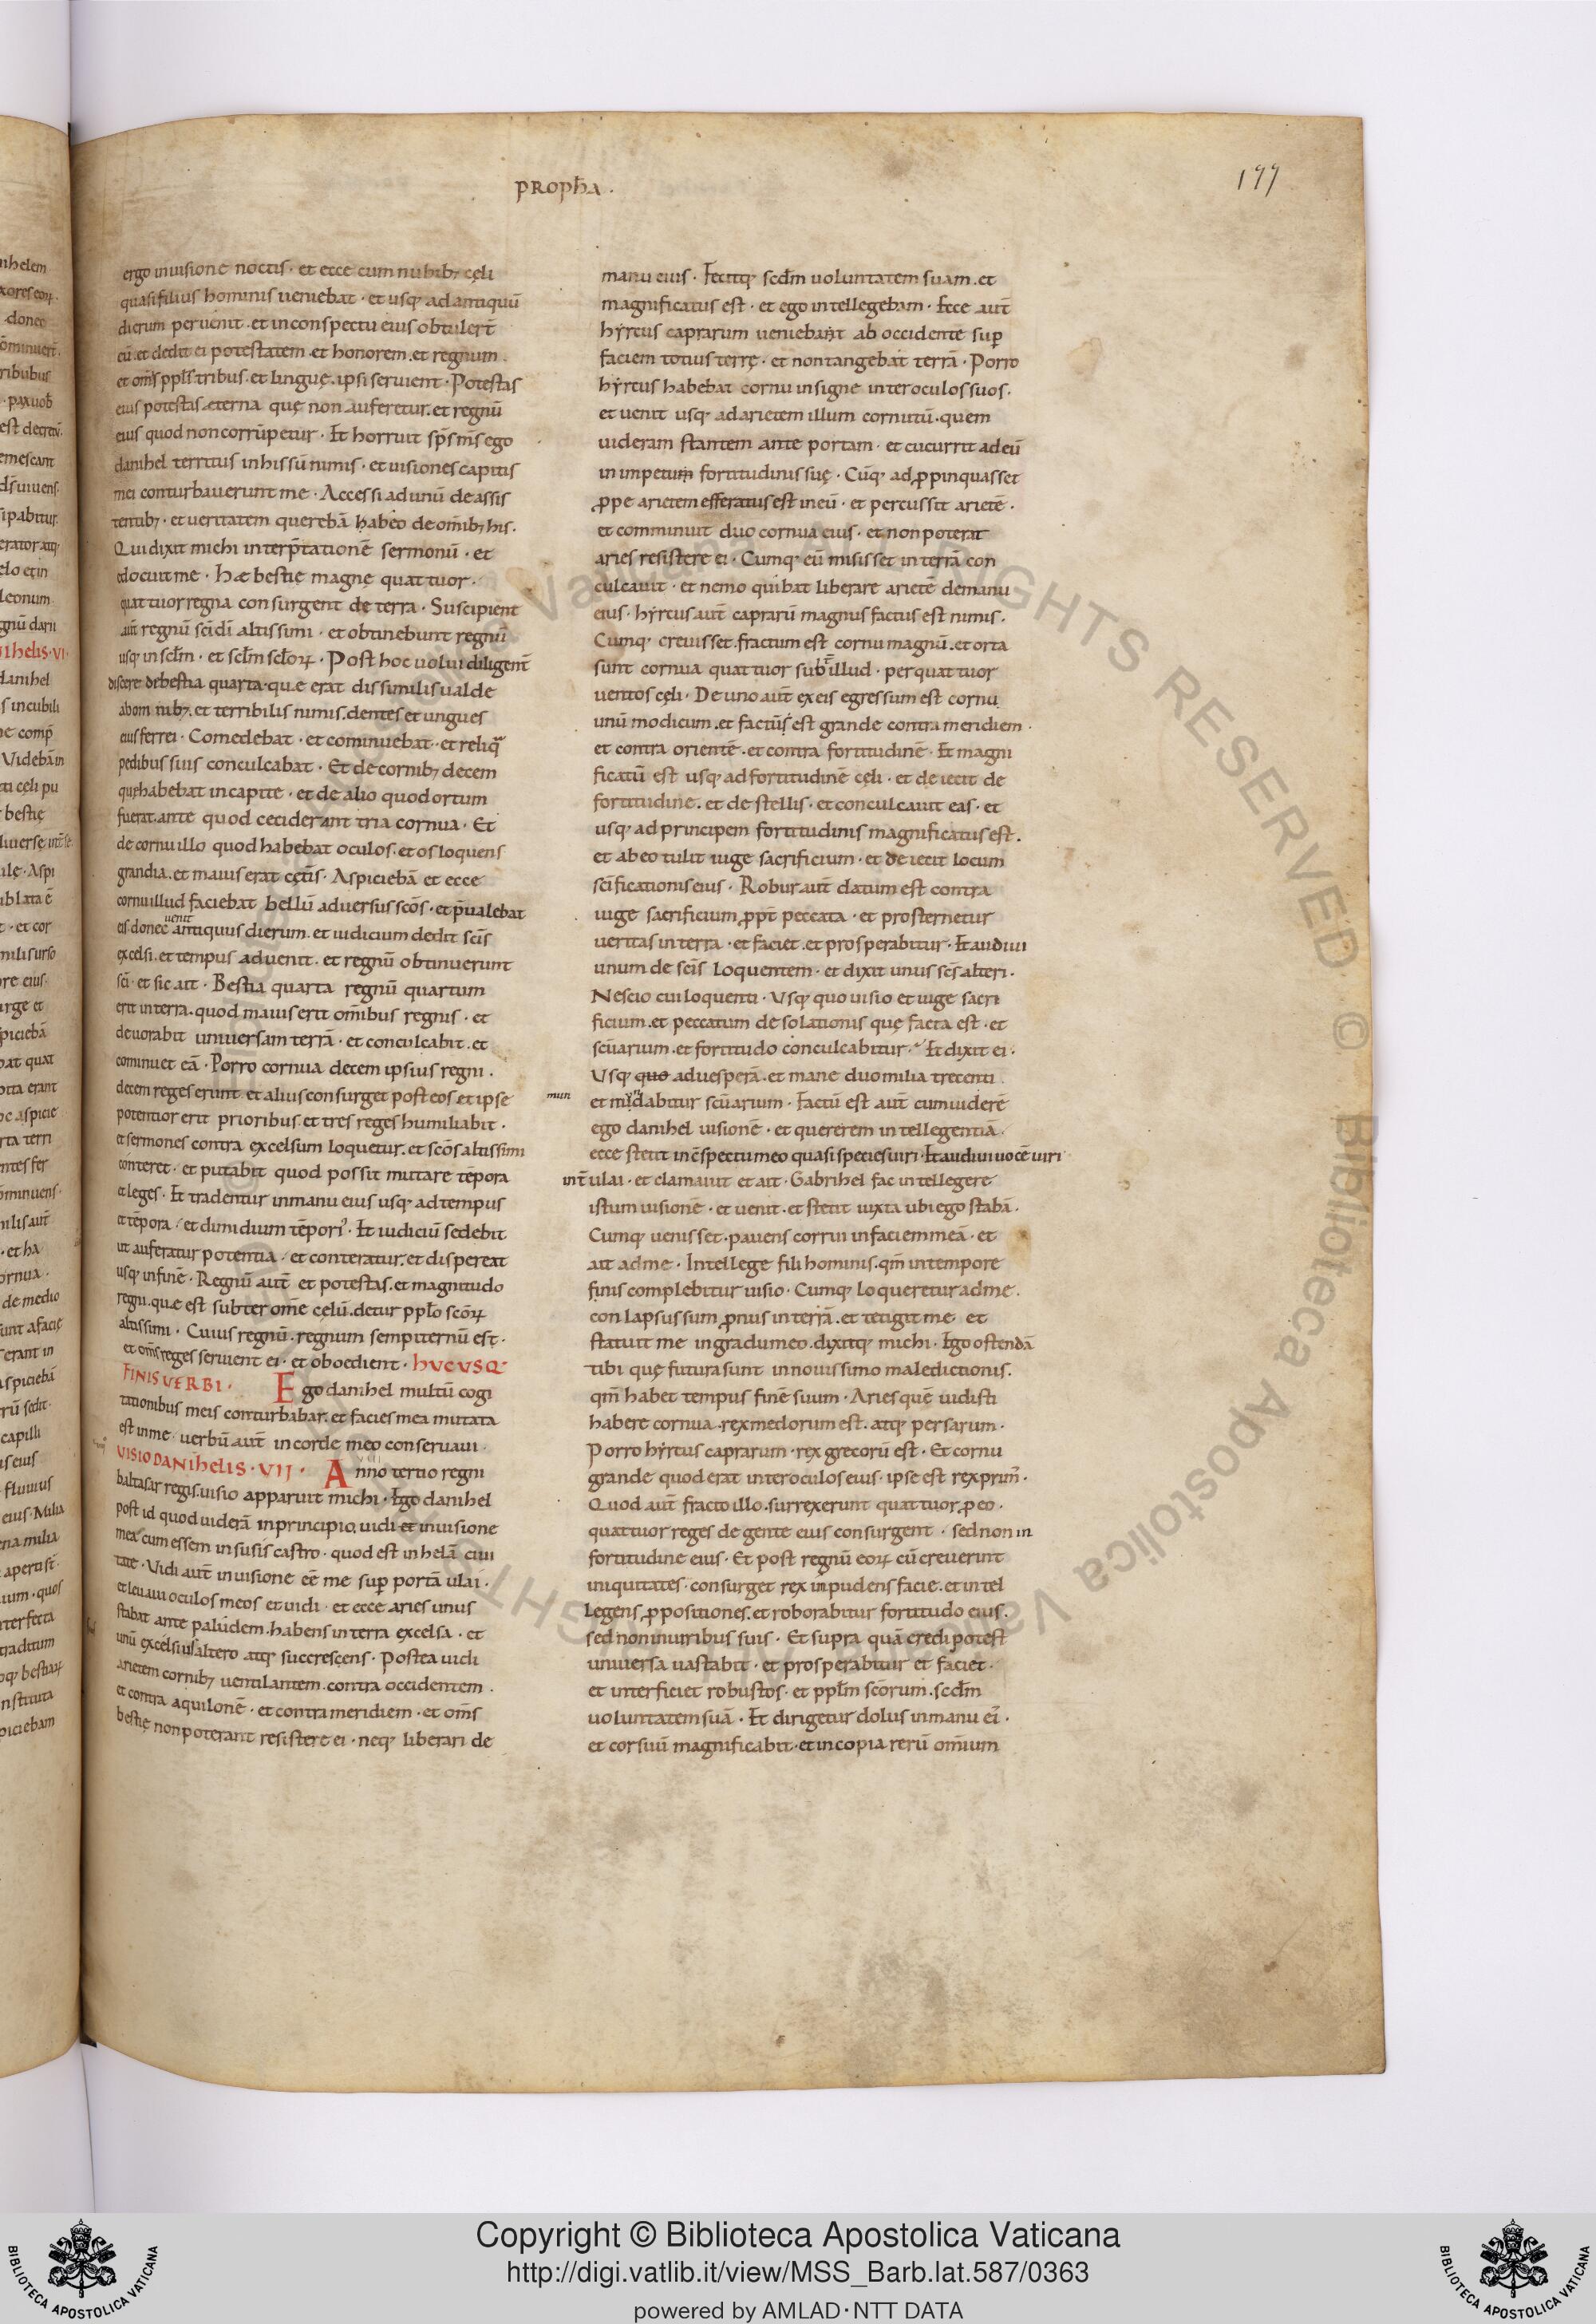 proph̄a .
177
ergo inuisione noctis · et ecce cum nubib; cęli
quasi filius hominis ueniebat · et usq; ad antiquū
dierum peruenit · et inconspectu eius obtulert̄
eū · et dedit ei potestatem · et honorem · et regnum
et om̄s pp̄ls tribus · et linguę · ipsi seruient · Potestas
eius potestas ęterna quę non auferetur · et regnū
eius quod non corrūpetur · Et horruit sp̄s m̄s ego
danihel territus in his sū nimis · et uisiones capitis
mei conturbauerunt me · Accessi ad unū de assis
tentib; · et ueritatem querebā habeo de om̄ib; his .
Qui dixit michi interp̄tationē sermonū · et
edocuit me · Hæ bestię magnę quattuor ·
quattuor regna consurgent de terra · Suscipient
aut̄ regnū sc̄i dī altissimi · et obtinebunt regnū
usq; in sc̄lm · et sc̄lm sc̄loꝝ · Post hoc uolui diligent̄
discere de bestia quarta · quę erat dissimilis ualde
abom nib; · et terribilis nimis · dentes et ungues
eius ferrei · Comedebat · et cominuebat · et reliqͣ
pedibus suis conculcabat · Et de cornib; decem
quę habebat in capite · et de alio quod ortum
fuerat · ante quod ceciderant tria cornua · Et
de cornu illo quod habebat oculos · et os loquens
grandia · et maius erat cęt̄is · Aspiciebā et ecce
cornu illud faciebat bellū aduersus sc̄os · et p̄ualebat
eis · donec uenit antiquus dierum · et iudicium dedit sc̄is
excelsi · et tempus aduenit · et regnū obtinuerunt
sc̄i · et sic ait · Bestia quarta regnū quartum
erit in terra · quod maius erit om̄ibus regnis · et
deuorabit uniuersam terrā · et conculcabit · et
cominuet eā · Porro cornua decem ipsius regni .
decem reges erunt · et alius consurget post eos · et ipse
potentior erit prioribus · et tres reges humiliabit ·
et sermones contra excelsum loquetur · et sc̄os altissimi
conteret · et putabit quod possit mutare tēpora
et leges · Et tradentur in manu eius usq; ad tempus
et tēpora · et dimidium tēporꝰ · Et iudiciū sedebit
ut auferatur potentia · et conteratur · et dispereat
usq; in finē · Regnū aut̄ et potestas · et magnitudo
regni · quę est subter om̄e cęlū · detur pp̄lo sc̄oꝝ
altissimi · Cuius regnū · regnum sempiternū est ·
et om̄s reges seruient ei · et oboedient · HUCUSQ;
FINIS VERBI · Ego danihel multū cogi
tationibus meis conturbabar · et facies mea mutata
est in me · uerbū aut̄ in corde meo conseruaui ·
VISIO DANIHELIS · VII · Anno tertio regni
baltasar regis · uisio apparuit michi · Ego danihel
post id quod uiderā in principio · uidi et in uisione
mea · cum essem in susis castro · quod est in helā ciui
tate · Vidi aut̄ in uisione eē me sup̄ portā ulai ·
et leuaui oculos meos et uidi · et ecce aries unus
stabat ante paludem · habens in terra excelsa · et
unū excelsius altero atq; succrescens · Postea uidi
arietem cornib; uentilantem · contra occidentem .
et contra aquilonē · et contra meridiem · et om̄s
bestię non poterant resistere ei · neq; liberari de
manu eius · Fecitq; sc̄dm uoluntatem suam · et
magnificatus est · et ego intellegebam · Ecce aut̄
hẏrcus caprarum ueniebant ab occidente sup̄
faciem totius terrę · et non tangebat terrā · Porro
hẏrcus habebat cornu insigne inter oculos suos .
et uenit usq; ad arietem illum cornutū · quem
uideram stantem ante portam · et cucurrit ad eū
in impetum fortitudinis suę · Cūq; adꝓpinquasset
ꝓpe arietem efferatus est in eū · et percussit arietē .
et comminuit duo cornua eius · et non poterat
aries resistere ei · Cumq; eū misisset in terrā con
culcauit · et nemo quibat liberare arietē de manu
eius · hẏrcus aut̄ caprarū magnus factus est nimis .
Cumq; creuisset · fractum est cornu magnū · et orta
sunt cornua quattuor subt̄ illud · per quattuor
uentos cęli · De uno aut̄ ex eis egressum est cornu
unū modicum · et factū est grande contra meridiem ·
et contra orientē · et contra fortitudinē · Et magni
ficatū est usq; ad fortitudinē cęli · et deiecit de
fortitudine · et de stellis · et conculcauit eas · et
usq; ad principem fortitudinis magnificatus est .
et ab eo tulit iuge sacrificium · et deiecit locum
sc̄ificationis eius · Robur aut̄ datum est contra
iuge sacrificium ꝓpt̄ peccata · et prosternetur
ueritas in terra · et faciet · et prosperabitur · Et audiui
unum de sc̄is loquentem · et dixit unus sc̄s alteri .
Nescio cui loquenti · Vsq; quo uisio et iuge sacri
ficium · et peccatum desolationis quę facta est · et
sc̄uarium · et fortitudo conculcabitur · Et dixit ei ·
Vsq; quo ad uesperā · et mane duo milia trecenti
mun
et mūdabitur sc̄uarium · Factū est aut̄ cum uiderē
ego danihel uisionē · et quererem intellegentiā ·
ecce stetit in c̄spectu meo quasi species uiri · Et audiui uocē uiri
int̄ ulai · et clamauit et ait · Gabrihel fac intellegere
istum uisionē · et uenit · et stetit iuxta ubi ego stabā .
Cumq; uenisset · pauens corrui in faciem meā · et
ait ad me · Intellege fili hominis · qm̄ in tempore
finis complebitur uisio · Cumq; loqueretur ad me .
conlapsus sum ꝓnus in terrā · et tetigit me et
statuit me in gradu meo · dixitq; michi · Ego ostendā
tibi quę futura sunt in nouissimo maledictionis .
qm̄ habet tempus finē suum · Aries quē uidisti
habere cornua · rex medorum est · atq; persarum ·
Porro hẏrcus caprarum · rex grecorū est · Et cornu
grande quod erat inter oculos eius · ipse est rex prim̄ ·
Quod aut̄ fracto illo · surrexerunt quattuor ꝓ eo ·
quattuor reges de gente eius consurgent · sed non in
fortitudine eius · Et post regnū eoꝝ cū creuerint
iniquitates · consurget rex impudens facie · et intel
legens ꝓpositiones · et roborabitur fortitudo eius .
sed non in uiribus suis · Et supra quā credi potest
uniuersa uastabit · et prosperabitur et faciet ·
et interficiet robustos · et pp̄lm sc̄orum · sc̄dm
uoluntatem suā · Et dirigetur dolus in manu eī ·
et cor suū magnificabit · et in copia rerū om̄ium
Copyright © Biblioteca Apostolica Vaticana
http://digi.vatlib.it/view/MSS_Barb.lat.587/0363
powered by AMLAD·NTT DATA